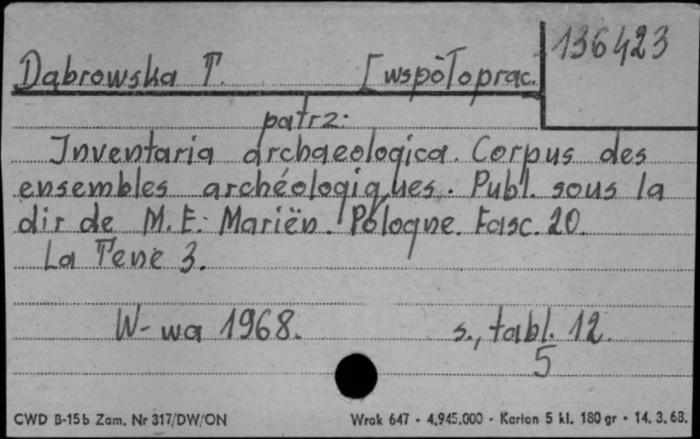 136423
Dąbrowska T. [współoprac.
patrz:
Inventaria archaeologica. Corpus des
ensembles archéologiques. Publ. sous la
dir de M. E. Mariën. Pologne. Fasc. 20.
La Tene 3.
W-wa 1968. s., tabl. 12.
5
CWD B-15b Zam. Nr 317/DW/ON Wrak 647 - 4.945.000 - Karton 5 kl. 180 gr - 14. 3. 68.